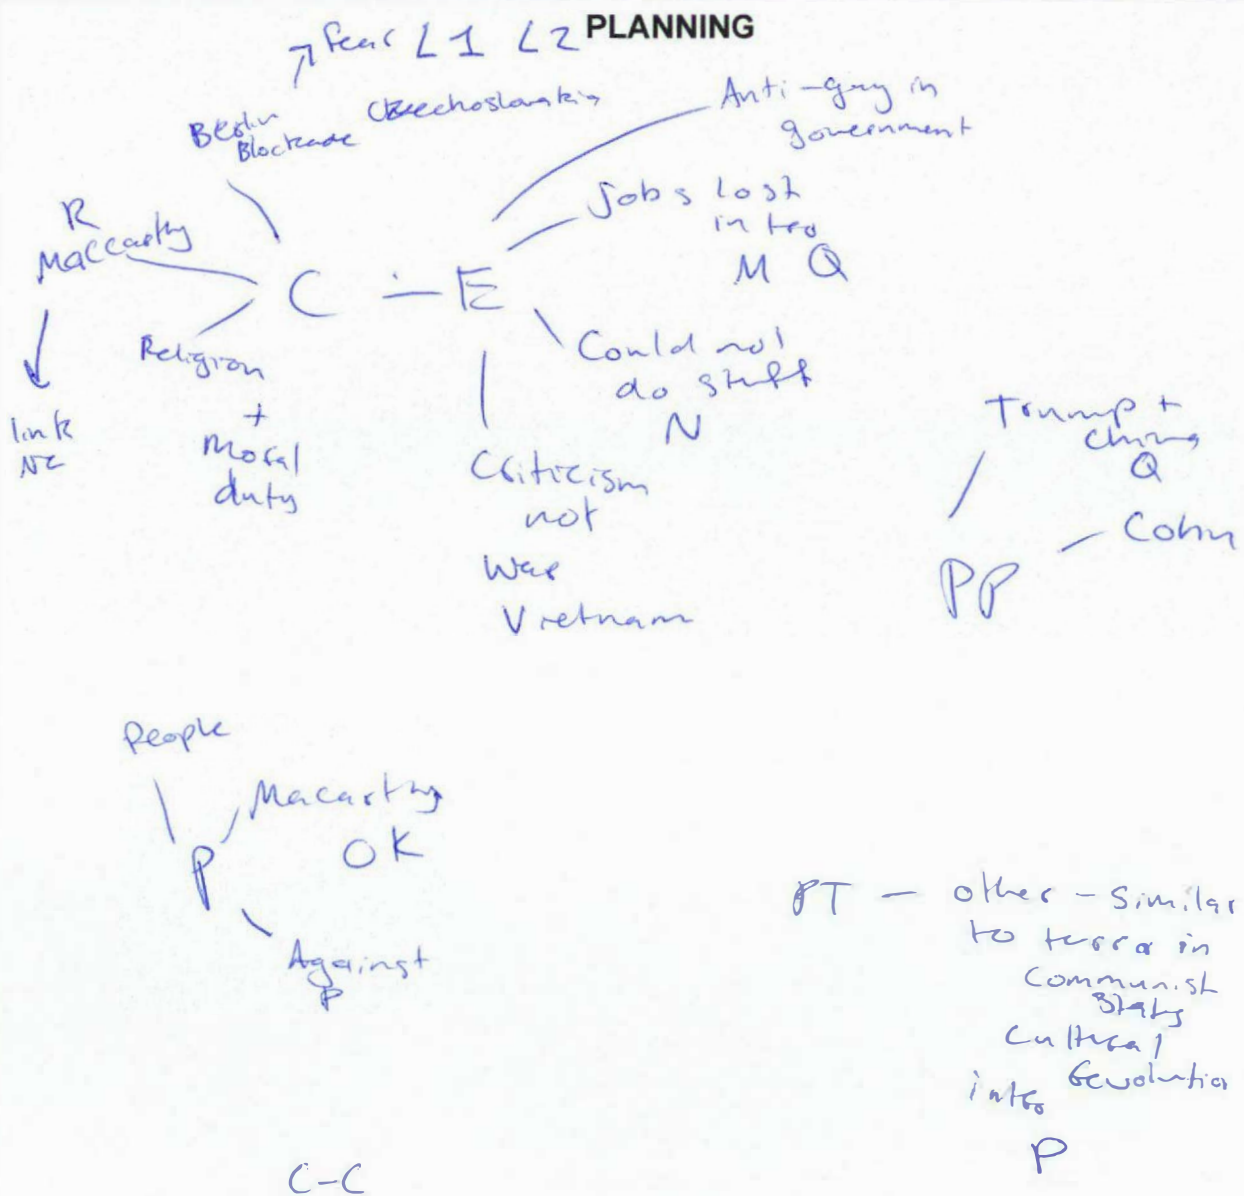 PLANNING
fear L1 L2
Berlin
Blockade
Czechoslovakia
Anti-gay in
government
Jobs lost
intro
M Q
R
Maccarthy
C - E
link
Religion
+
Moral
duty
Could not
do stuff
N
Criticism
not
War
Vietnam
Trump +
China
Q
Cohn
PP
People
Macarthy
OK
P
Against
P
PT - other - Similar
to terror in
Communist
States
Cultural
Revolution
intro
P
C-C